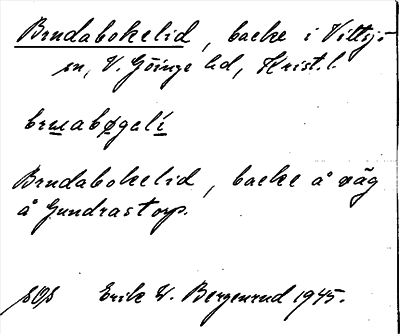 Brudabokelid, backe i Vittsjö
sn, V. Göinge hd, Krist. l
bruabøgalí
Brudabokelid, backe å väg
å Gundrastorp.
Erik W. Bergenrud 1945.